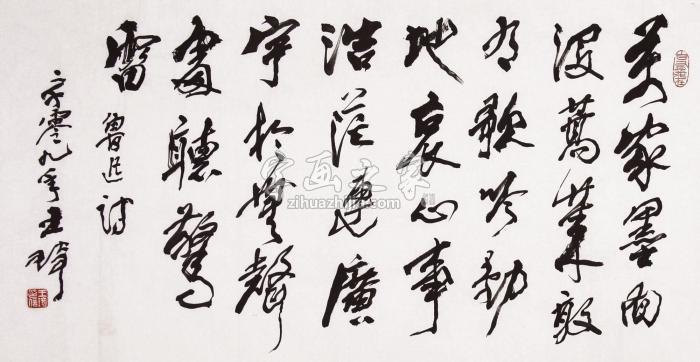 萬家墨面
没蒿莱敢
有歌吟動
地哀心事
浩茫連廣
宇於無聲
處聽驚
雷
魯迅詩
零九年王
字画之家
zihuazhijia.com